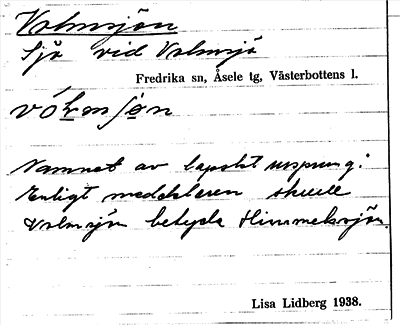 Volmsjön
Sjö vid Volmsjö
Fredrika sn, Åsele tg, Västerbottens l.
Namnet av lapskt ursprung:
Enligt meddelaren skulle
Volmsjön betyda Himmelssjön.
Lisa Lidberg 1938.